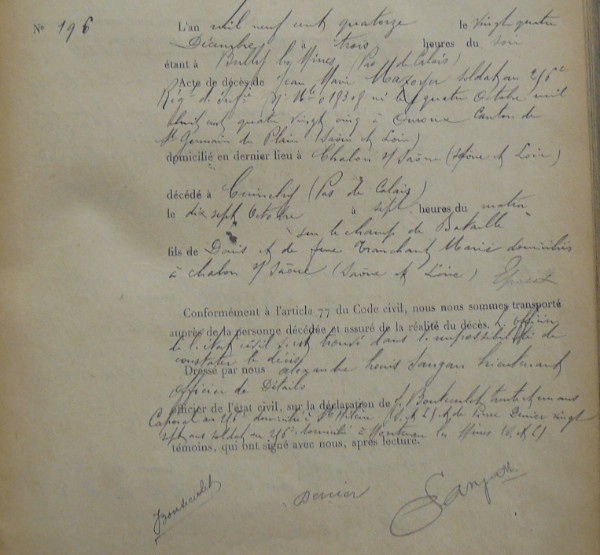 N° 196
L'an mil neuf cent quatorze le vingt quatre
Décembre à trois heures du soir
étant à Bully les Mines (Pas de Calais)
Acte de décès de Jean Marie Mazoyer soldat au 256e
Rég. d'Infie né le quatre Octobre mil
huit cent quatre vingt cinq à Ouroux Canton de
St Germain du Plain (Saône et Loire)
domicilié en dernier lieu à Chalon s/ Saône (Saône et Loire)
décédé à Cuinchy (Pas de Calais)
le dix sept Octobre à sept heures du matin
"sur le champ de Bataille"
fils de Denis et de Tranchant Marie domiciliés
à Chalon s/ Saône (Saône et Loire)
Conformément à l'article 77 du Code civil, nous nous sommes transporté
auprès de la personne décédée et assuré de la réalité du décès. L'officier
de l'état civil s'est trouvé dans l'impossibilité de
constater le décès
Dressé par nous Alexandre Louis Sangan lieutenant
Officier de Détails
officier de l'état civil, sur la déclaration de trente ans
Caporal au 256e domicilié à St (S. & L) et de Pierre Dernier vingt
sept ans soldat au 256e domicilié à Montceau les Mines (S. & L)
témoins, qui ont signé avec nous, après lecture.
Dernier